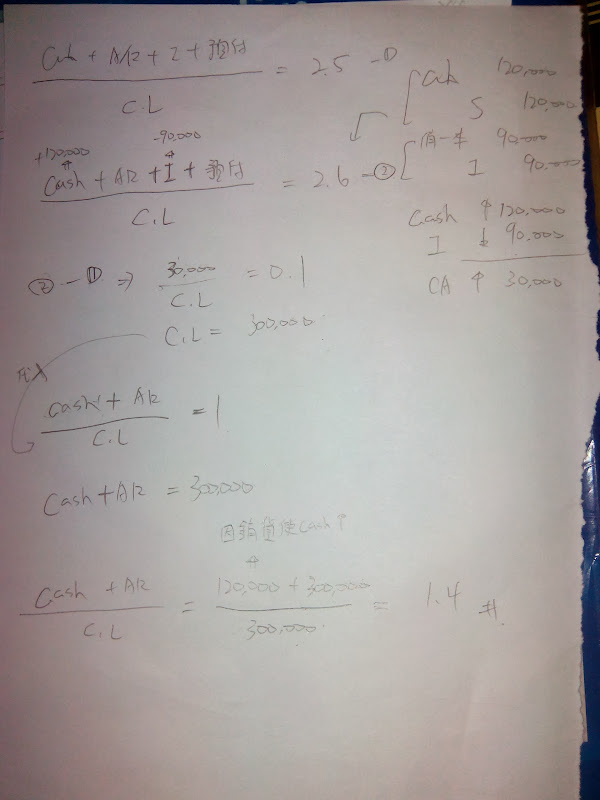 Cash + A/R + I + 預付 = 2.5 —①
C.L
Cash 120,000
S 120,000
銷一本 90,000
I 90,000
+120,000 -90,000
Cash + AR + I + 預付 = 2.6 —②
C.L
Cash ↑ 120,000
I ↓ 90,000
CA ↑ 30,000
② — ① ⇒ 30,000 = 0.1
C.L
C.L = 300,000
代入
Cash + AR = 1
C.L
Cash + AR = 300,000
因銷貨使Cash↑
Cash + AR = 120,000 + 300,000 = 1.4 #
C.L 300,000